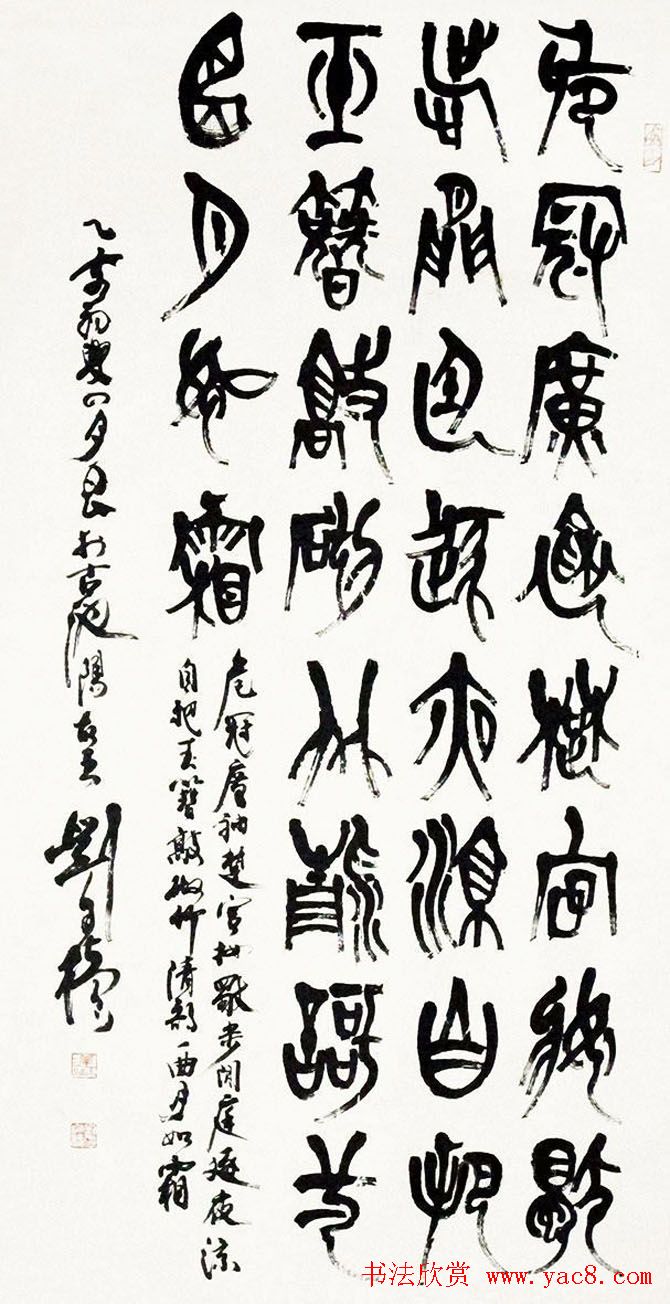 危冠廣袖楚宮妝獨
步閒庭逐夜涼自把
玉簪敲砌竹清歌一
曲月如霜
危冠廣袖楚宮妝獨步閒庭逐夜涼
自把玉簪敲砌竹清歌一曲月如霜
乙亥初夏四月於古池陽劉自櫝
书法欣赏 www.yac8.com